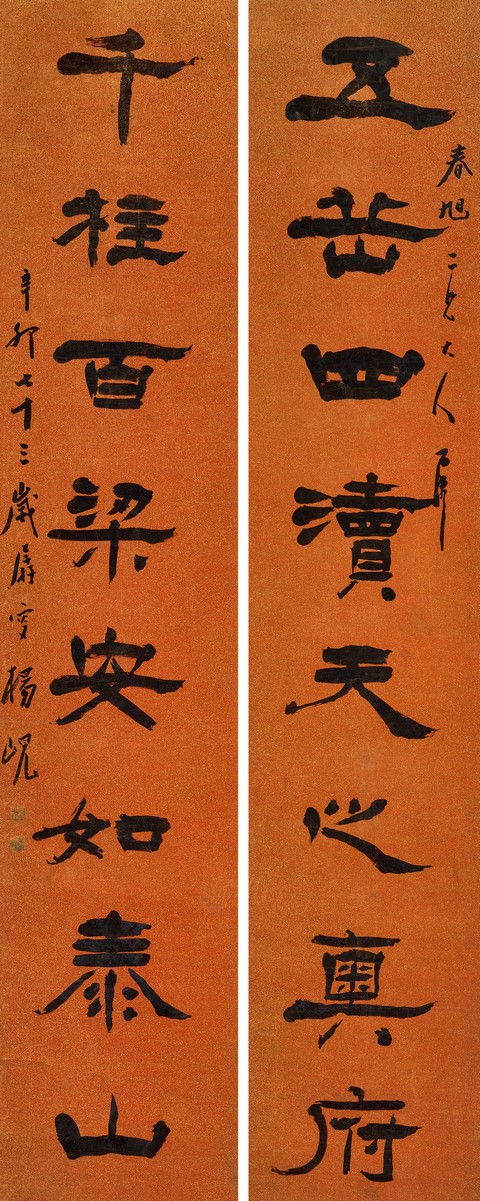 五岳四瀆天之奧府
春旭二兄大人
千柱百梁安如泰山
辛卯七十三歲孱叟楊峴